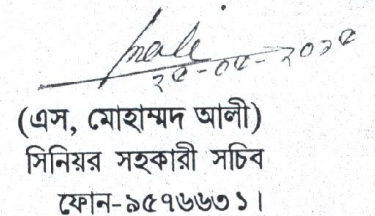 ২৫-০৫-২০১৫
(এস, মোহাম্মদ আলী)
সিনিয়র সহকারী সচিব
ফোন-৯৫৭৬৬৩১।